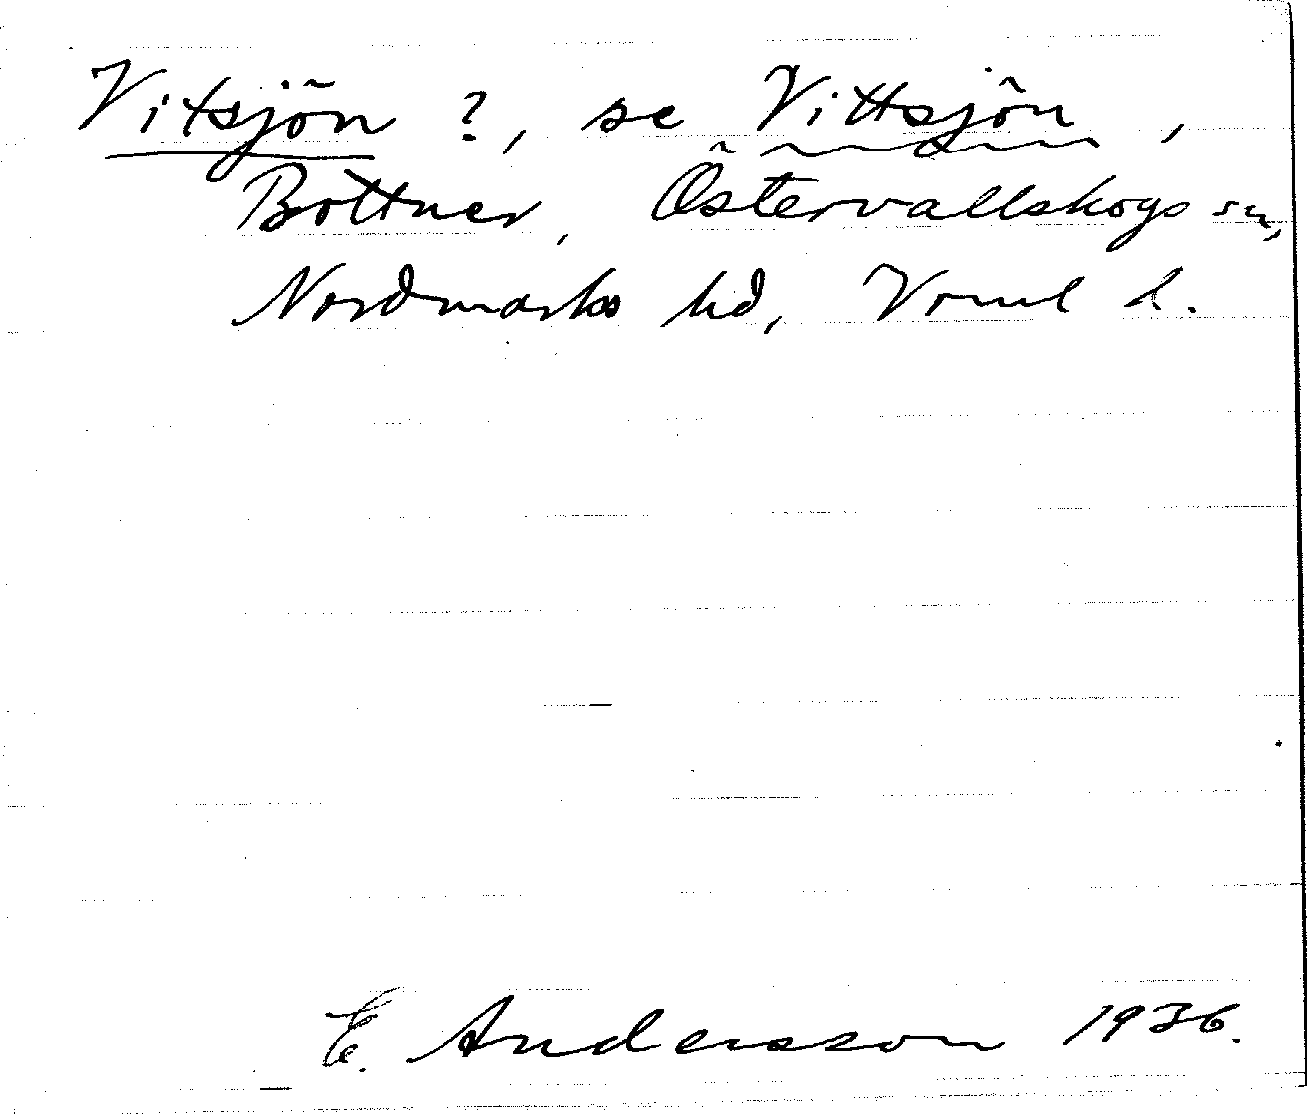 Vitsjön ?, se Vittsjön,
Bottner, Östervallskogs sn,
Nordmarks hd, Vrml l.
E. Andersson 1936.